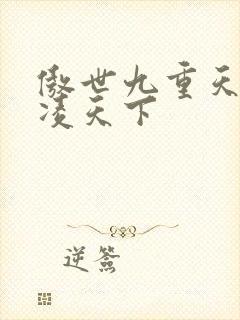 傲世九重天
凌天下
逆簽